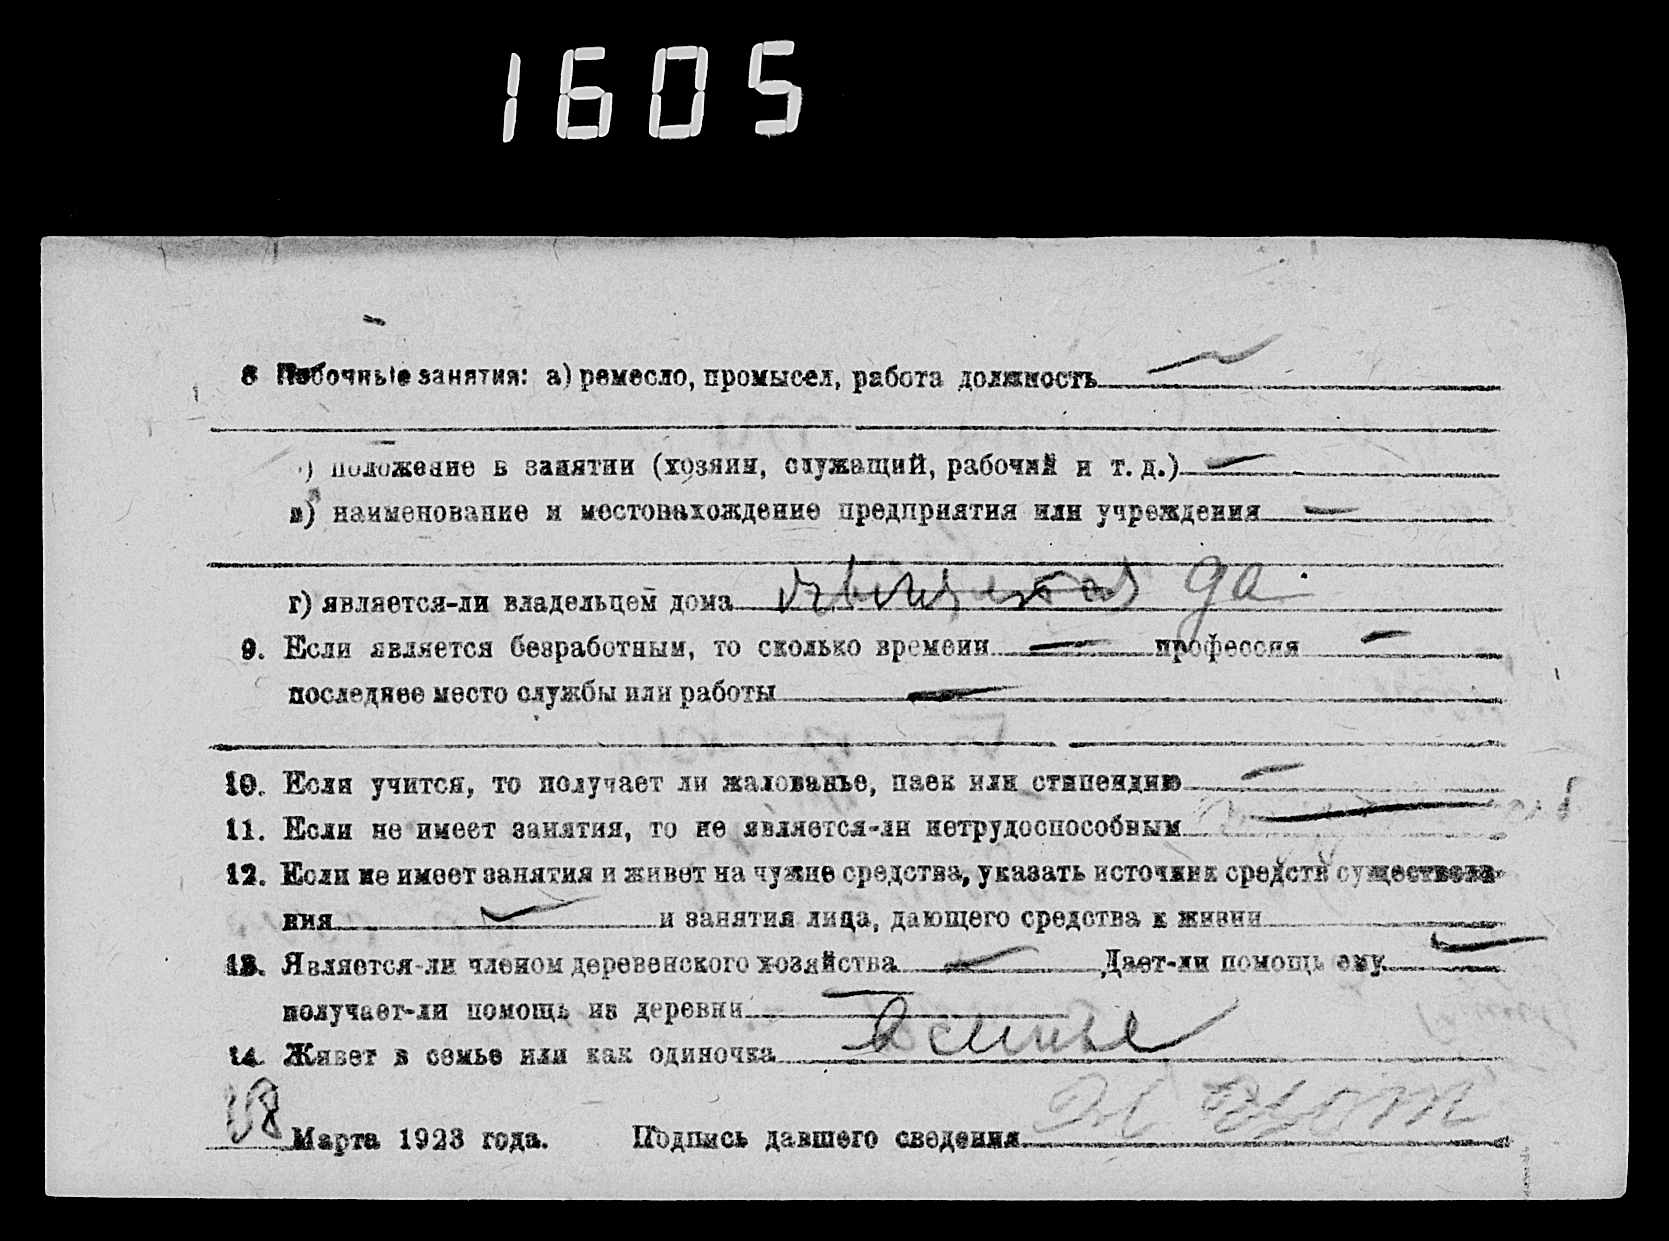 1605
8 Побочные занятия: а) ремесло, промысел, работа должность
) положение в занятии (хозяин, служащий, рабочий и т. д.)
в) наименование и местонахождение предприятия или учреждения
г) является-ли владельцем дома да.
9. Если является безработным, то сколько времени профессия
последнее место службы или работы
10. Если учится, то получает ли жалованье, паек или стипендию
11. Если не имеет занятия, то не является-ли нетрудоспособным
12. Если не имеет занятия и живет на чужие средства, указать источник средств существова-
ния и занятия лица, дающего средства к жизни
13. Является-ли членом деревенского хозяйства Дает-ли помощь ему
получает-ли помощь из деревни
14. Живет в семье или как одиночка в семье
18 Марта 1923 года. Подпись давшего сведения